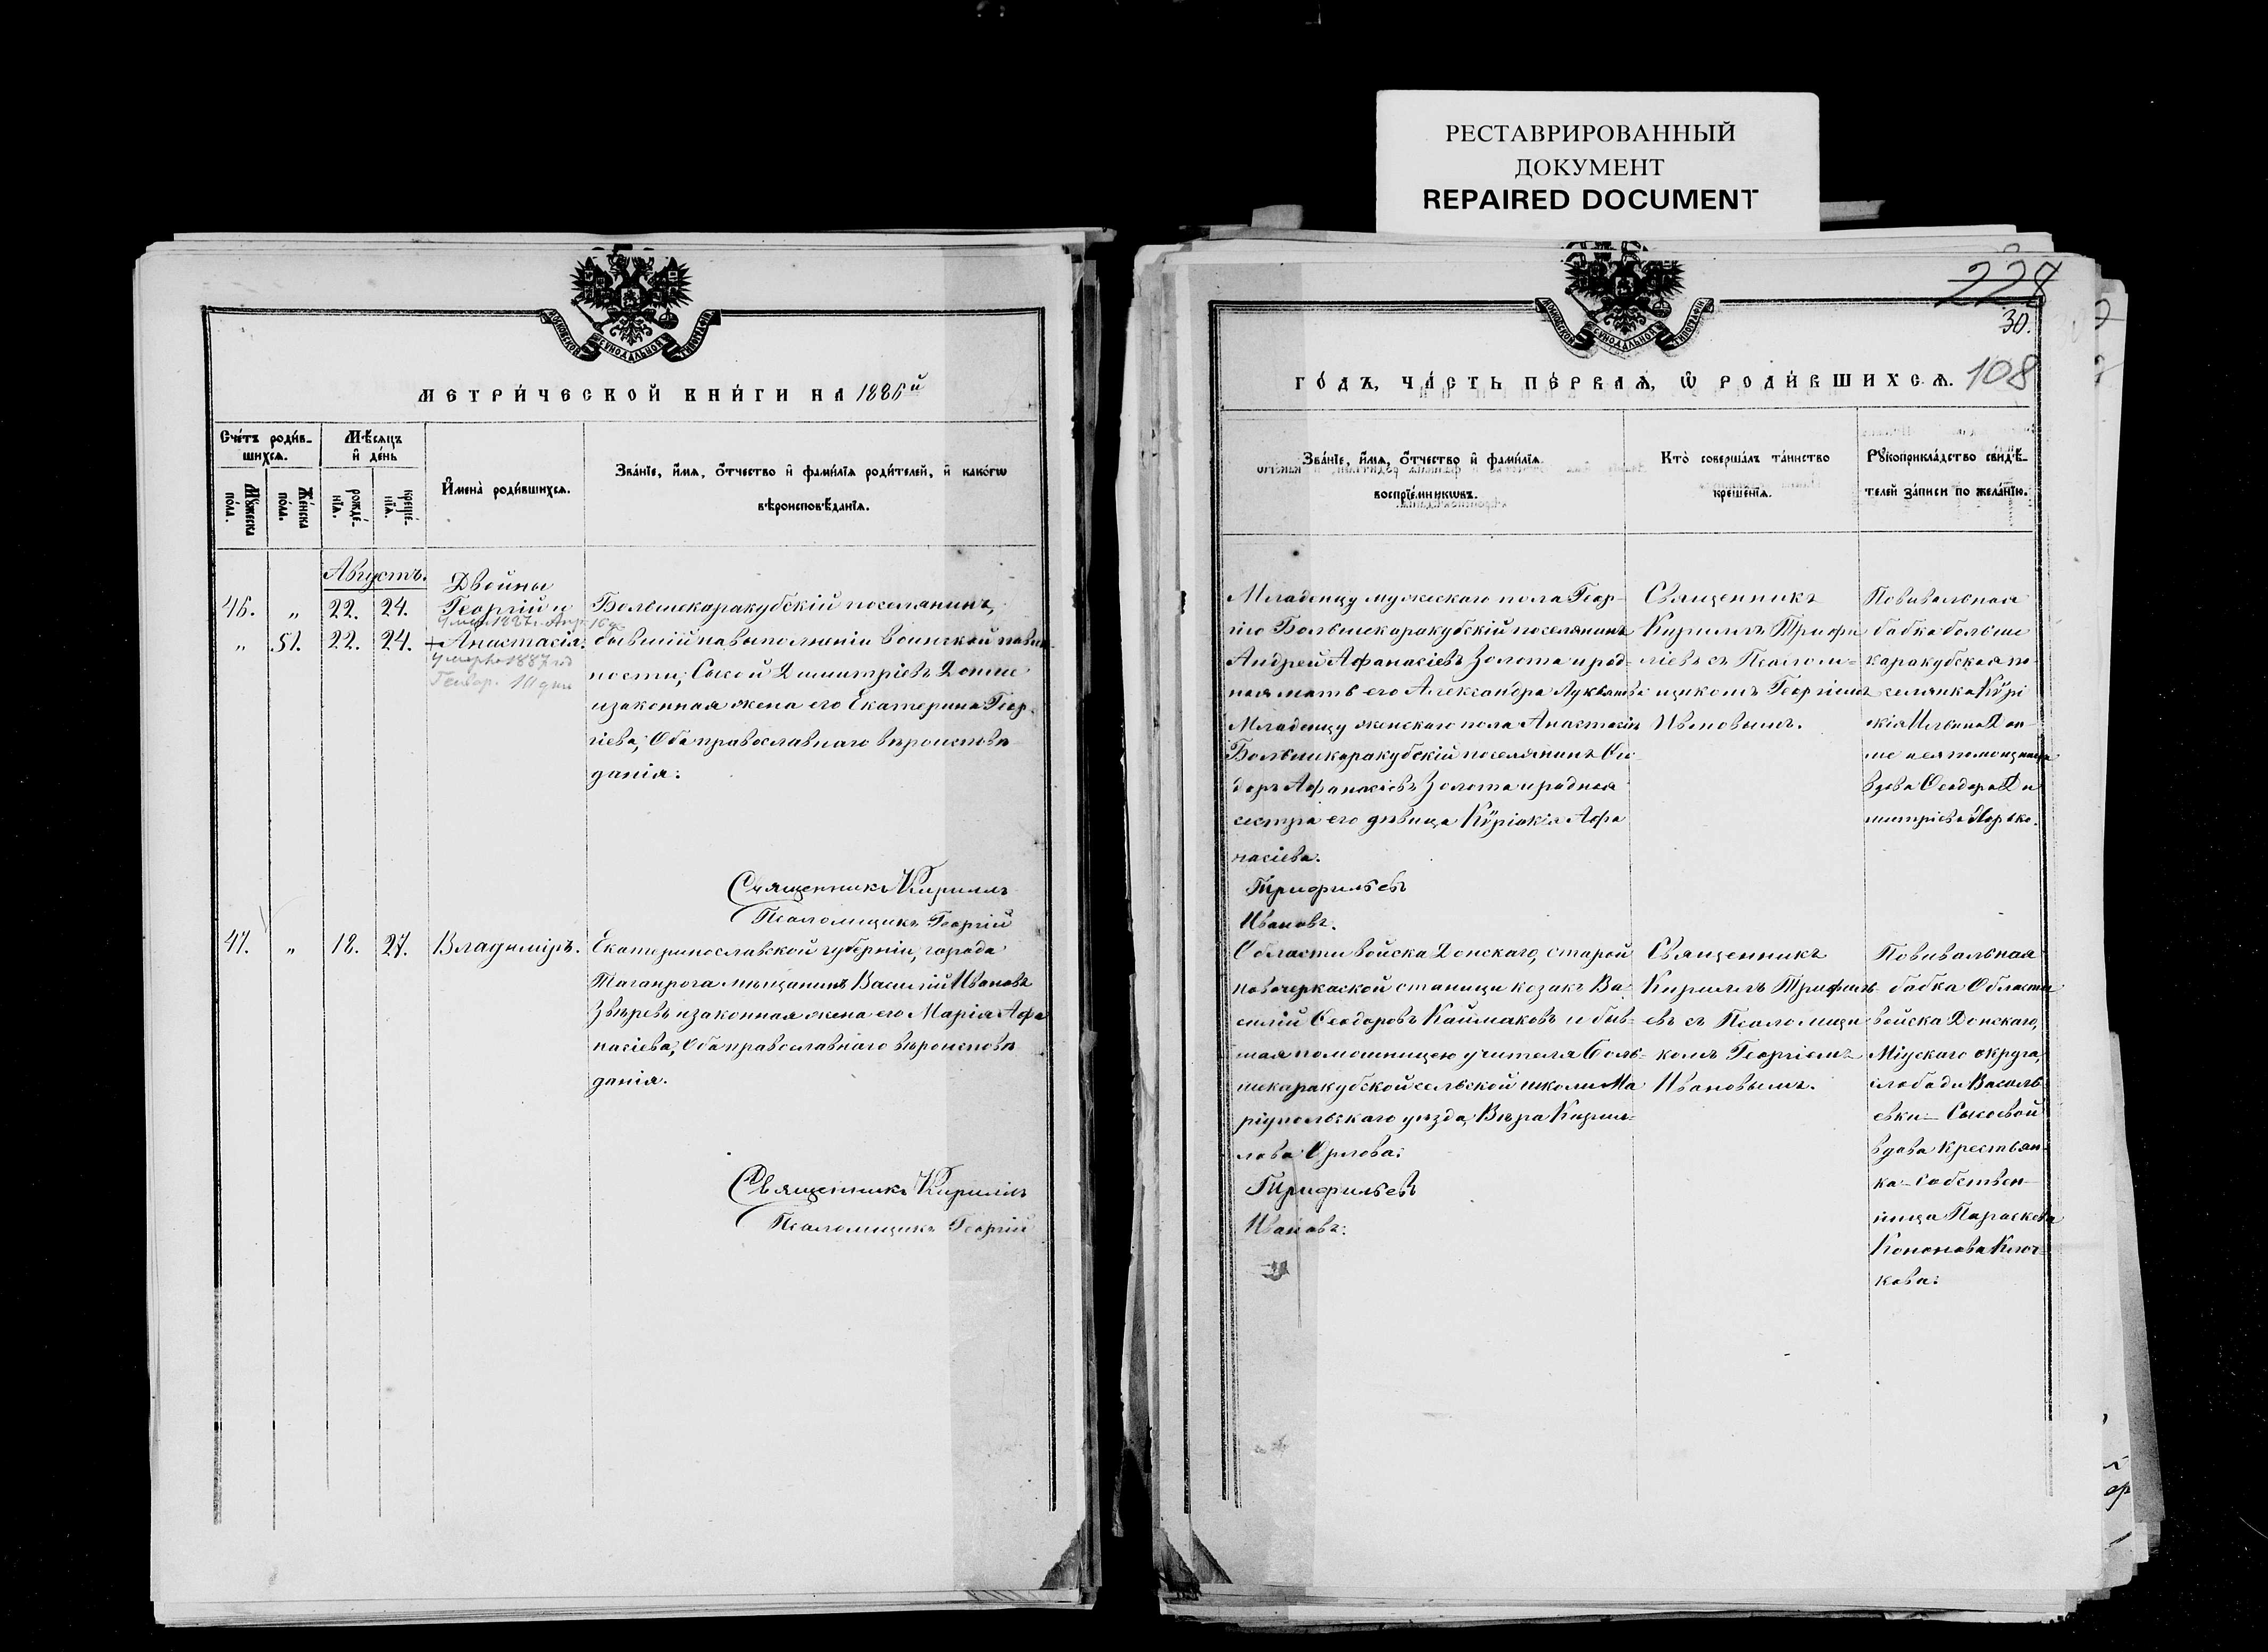 РЕСТАВРИРОВАННЫЙ
ДОКУМЕНТ
REPAIRED DOCUMENT
МОСКОВСКОЙ СѴНОДАЛЬНОЙ ТИПОГРАФІИ
МЕТРИ́ЧЕСКОЙ КНИ́ГИ НА 1886й
Сче́тъ роди́в-
шихсѧ.
Мѣ́сѧцъ
и҆ де́нь
Мꙋ́жеска
по́ла.
Же́нска
по́ла.
рожде́-
нїѧ.
креще́-
нїѧ.
И҆мена̀ роди́вшихсѧ.
Зва́нїе, и҆́мѧ, ѻ҆́тчество и҆ фами́лїѧ роди́телей, и҆ како́гѡ
вѣроисповѣ́данїѧ.
Августъ.
Двойни
46. „ 22. 24. Георгій и
„ 51. 22. 24. Анастасія.
Умерла 1887 год
Генвар. 10 дня
Большекаракубскій поселянинъ,
бывшій на выполненіи воинской повин-
ности, Сысой Димитріевъ Донше
и законная жена его Екатерина Геор-
гіева, Оба православнаго вѣроисповѣ-
данія.
Священникъ Кириллъ
Псаломщикъ Георгій
47. „ 18. 27. Владиміръ.
Екатеринославской губерніи, города
Таганрога мѣщанинъ Василій Ивановъ
Звѣревъ и законная жена его Марія Афа-
насіева, Оба православнаго вѣроисповѣ-
данія.
Священникъ Кириллъ
Псаломщикъ Георгій
228
30.
108
МОСКОВСКОЙ СѴНОДАЛЬНОЙ ТИПОГРАФІИ
ГО́ДЪ, ЧА́СТЬ ПЕ́РВАѦ, Ѡ҆ РОДИ́ВШИХСѦ.
Зва́нїе, и҆́мѧ, ѻ҆́тчество и҆ фами́лїѧ
воспрїе́мникѡвъ.
Кто̀ соверша́лъ та́инство
креще́нїѧ.
Рꙋкоприкла́дство свидѣ́-
телей за́писи по жела́нїю.
Младенцу мужескаго пола Геор-
гію Большекаракубскій поселянинъ
Андрей Афанасіевъ Золота и род-
ная мать его Александра Лукьянова
Младенцу женскаго пола Анастасіи
Большекаракубскій поселянинъ Ѳео-
доръ Афанасіевъ Золота и родная
сестра его дѣвица Кѵріакія Афа
насіева.
Трифильевъ
Ивановъ.
Священникъ
Кириллъ Трифи
ліевъ съ Псалом-
щикомъ Георгіемъ
Ивановымъ.
Повивальная
бабка больше
каракубская по-
селянка Кѵрі
вдова Ѳеодора Ди
Области войска Донскаго, старой
новочеркаской станицы козакъ Ва-
силій Ѳеодоровъ Каймаковъ и быв-
шая помошницею учителя Боль-
шекаракубской сельской школы Ма
ріупольскаго уѣзда, Вѣра Кирил-
лова Орлова.
Трифильевъ
Ивановъ.
Священникъ
Кириллъ Трифиль-
евъ съ Псаломщи-
комъ Георгіемъ
Ивановымъ.
Повивальная
бабка Области
войска Донскаго,
Міускаго округа,
слободы Василь-
евки-Сысоевой
вдова крестьян-
ка-собствен-
ница Параскева
Кононова Клоч-
кова.